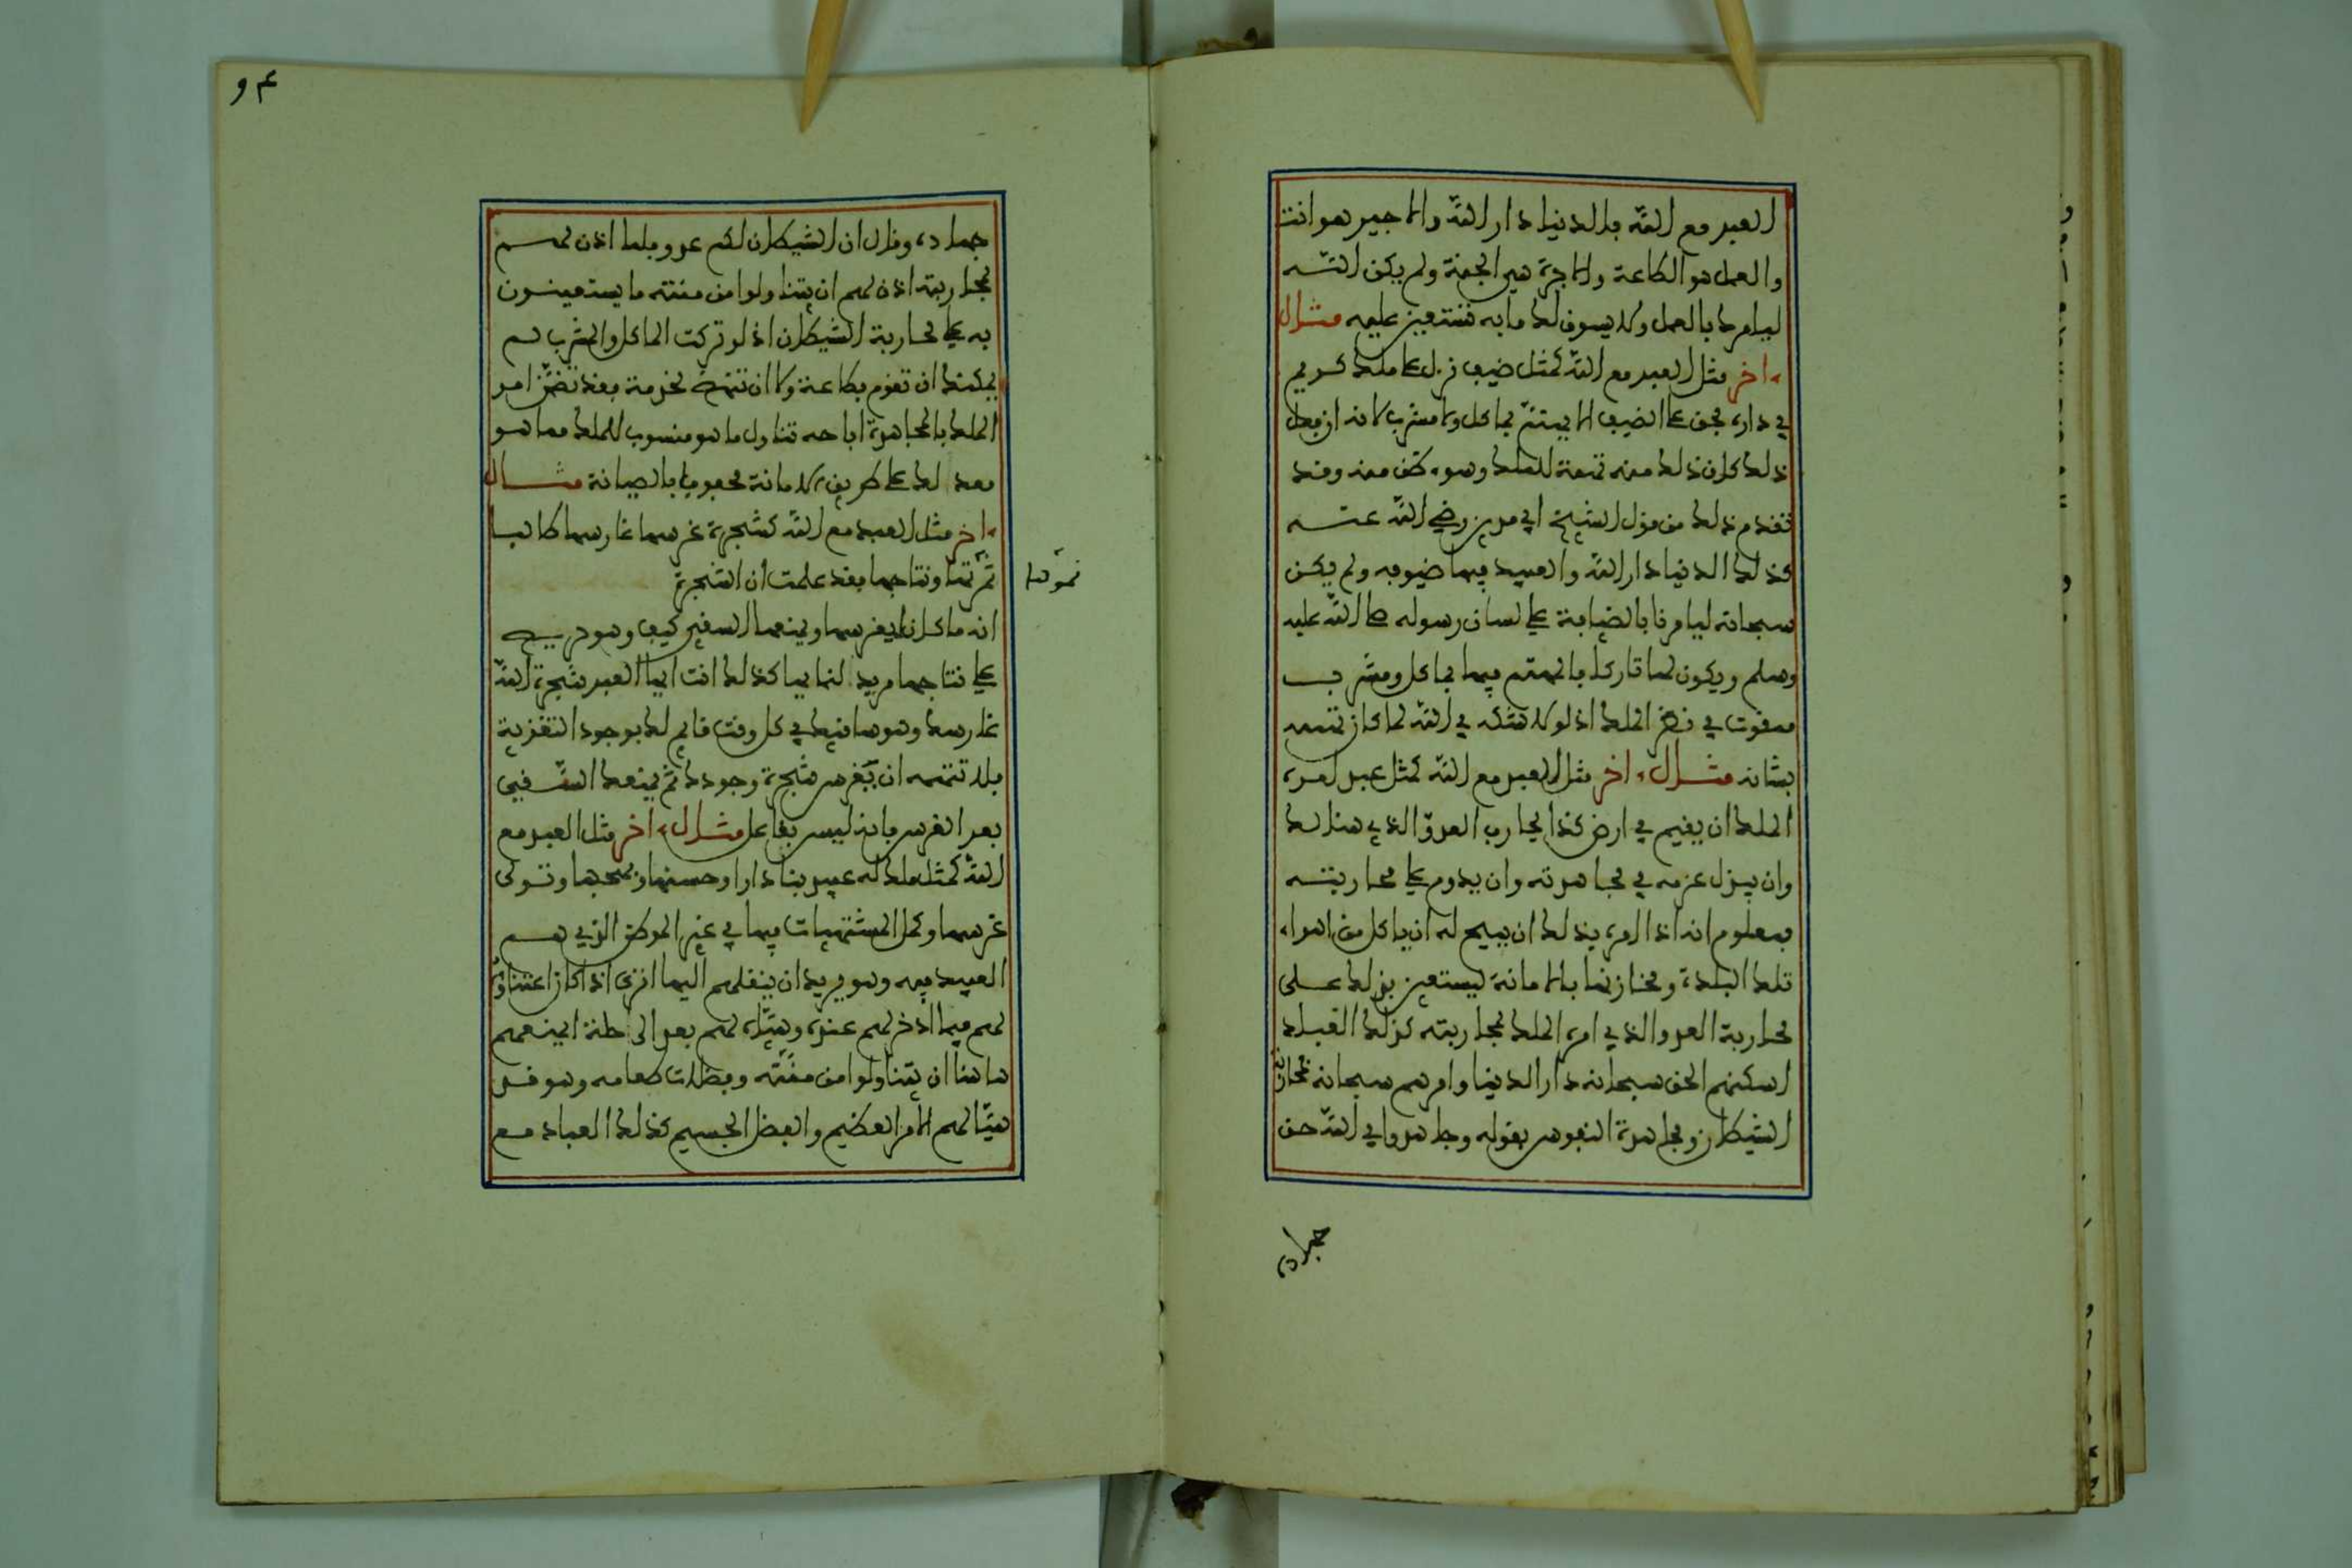 العبد مع الله فالدنيا دار الله والاجير هو انت
والعمل هو الطاعة والاجرة هي الجنة ولم يكن الله
ليامرك بالعمل ولا يسوق لك ما به تستعين عليه مثال
ءاخر مثل العبد مع الله كمثل ضيف نزل على ملك كريم
في داره فحق على الضيف الا يهتم بماكل ولا مشرب لانه ان فعل
ذلك كان ذلك منه تهمة للملك وسوء ظن منه وقد
تقدم ذلك من قول الشيخ ابي مدين رضي الله عنه
كذلك الدنيا دار الله والعبيد فيها ضيوفه ولم يكن
سبحانه ليامرنا بالضيافة على لسان رسوله صلى الله عليه
وسلم ويكون لها تاركا فالمهتم فيها بماكل ومشرب
ممقوت في نظر الملك اذ لولا شكه في الله لما كان يهتم
بشانه مثال ءاخر مثل العبد مع الله كمثل عبد امره
الملك ان يقيم في ارض كذا يحارب العدو الذي هنالك
وان يبذل عزمه في مجاهدته وان يدوم على محاربته
فمعلوم انه اذا امره بذلك ان يبيح له ان ياكل من اهراء
تلك البلدة ومخازنها بالامانة ليستعين بذلك على
محاربة العدو الذي امره الملك بمحاربته كذلك العباد
اسكنهم الحق سبحانه دار الدنيا وامرهم سبحانه بمحاربة
الشيطان ومجاهدة النفوس بقوله وجاهدوا في الله حق
جهاده
٩٤
جهاده وقال ان الشيطان لكم عدو فلما اذن لهم
بمحاربته اذن لهم ان يتناولوا من منته ما يستعينون
به على محاربة الشيطان اذ لو تركت الماكل والمشرب لم
يمكنك ان تقوم بطاعته ولا ان تنهض لخدمته فقد تضمن امر
الملك بالمجاهدة اباحه تناول ما هو منسوب للملك مما هو
معد لك على طريق الامانة محفوظا بالصيانة مثال
ءاخر مثل العبد مع الله كشجرة غرسها غارسها طالبا
ثمرتها ونتاجها فقد علمت ان الشجرة
نموها
انه ما كان ليغرسها ويمنعها السقي كيف وهو حريص
على نتاجها مريد لنمائها كذلك انت ايها العبد شجرة الله
غارسك وهو ساقيك في كل وقت قائم لك بوجود التغذية
فلا تتهمه ان يغرس شجرة وجودك ثم يمنعك السقي
بعد الغرس فانه ليس بغافل مثال ءاخر مثل العبد مع
الله كمثل ملك له عبيد بنا دارا وحسنها وبهجها وتولى
غرسها وكمل المشتهيات فيها في غير الموطن الذي هم
العبيد فيه وهو يريد ان ينقلهم اليها اترى اذا كان اعتناؤه
لهم فيما ادخر لهم عنده وهيأه لهم بعد الرحلة ايمنعهم
هاهنا ان يتناولوا من منته وفضلات طعامه وهو قد
هيأ لهم الامر العظيم والفضل الجسيم كذلك العباد مع